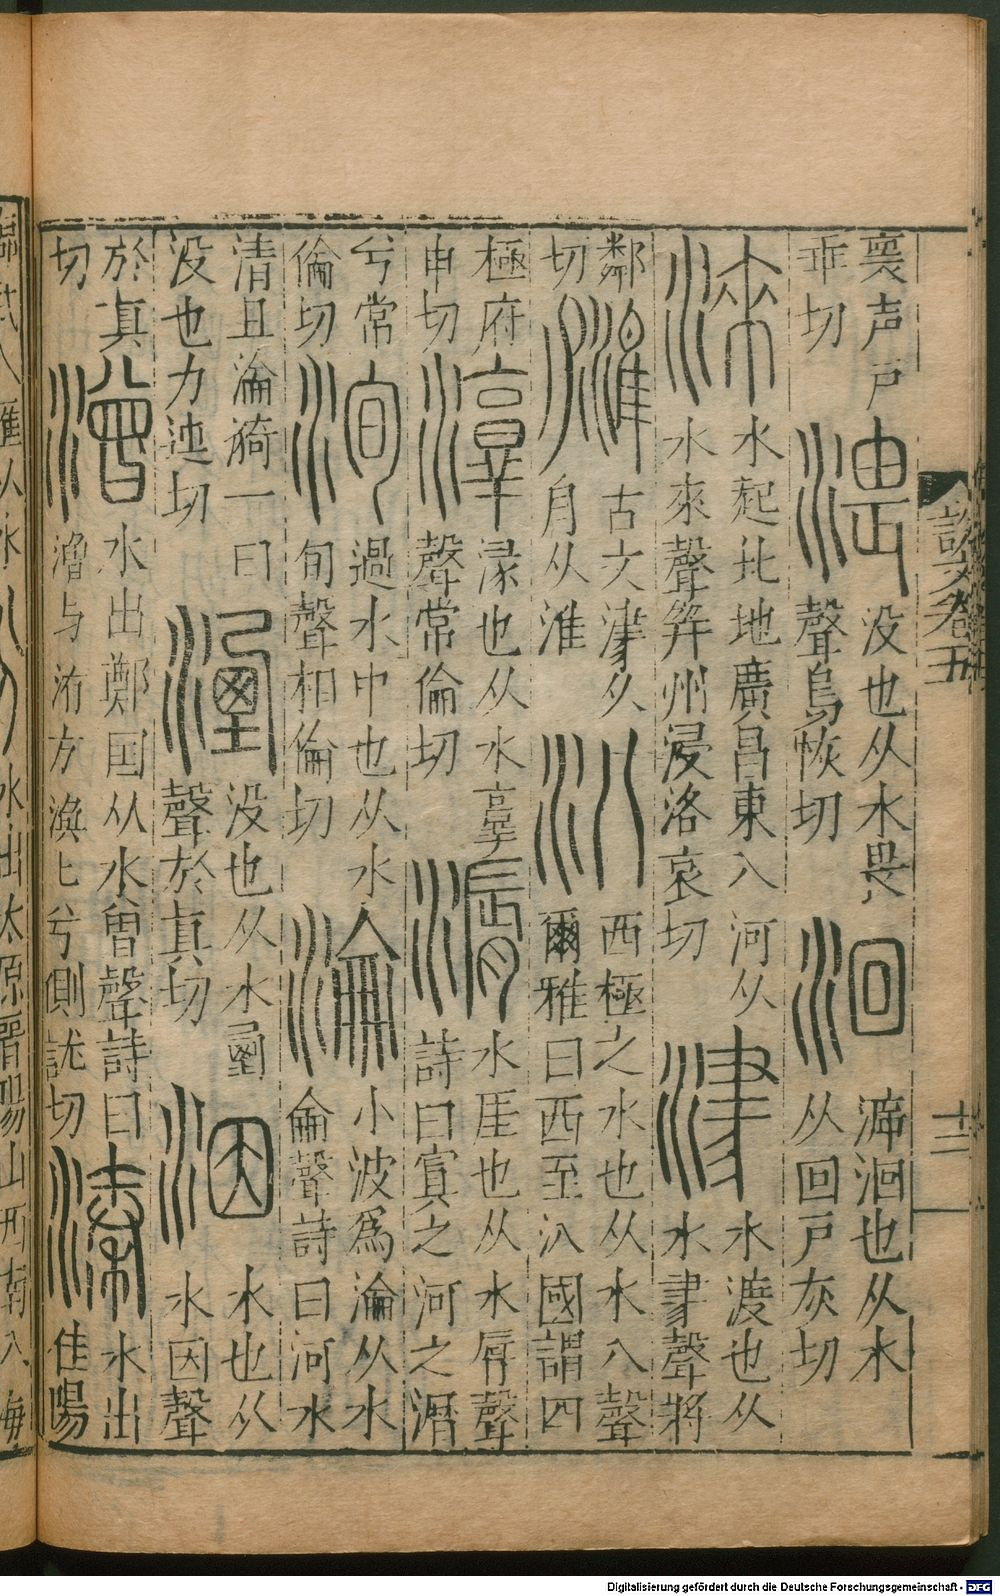 褱声戶乖切渨没也从水畏聲烏恢切洄㴑洄也从水从回戶灰切
淶水起北地廣昌東入河从水來聲并州浸洛哀切津水渡也从水𦘔聲將
鄰切𦩍古文津从舟从淮汃西極之水也从水八聲爾雅曰西至汃國謂四
極府申切淳渌也从水𦎧聲常倫切漘水厓也从水脣聲詩曰寘之河之漘
兮常倫切洵過水中也从水旬聲相倫切淪小波為淪从水侖聲詩曰河水
清且淪漪一曰没也力迍切湮没也从水垔聲於真切洇水也从水因聲
於真切潧水出鄭国从水曾聲詩曰潧与洧方渙匕兮側詵切溱水出桂陽
說文卷五
十二
水出太原晉陽山西南入海
Digitalisierung gefördert durch die Deutsche Forschungsgemeinschaft - DFG